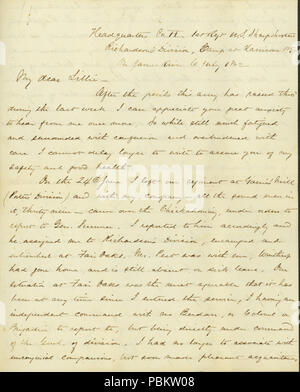 Headquarter Co. 1st Regt U.S. Sharpshooters
Richardson's Division, Camp at Harrison's
on James River 6 July 1862
My dear Lillie—
After the perils this army has passed thro'
during the last week I can appreciate your great anxiety
to hear from me once more. So while still much fatigued
and surrounded with confusion and overburdened with
care I cannot delay longer to write to assure you of my
safety and good health.
On the 24th June I left our regiment at Gaines' Mill
(Porter's Division) and with my company, all the sound men in
it, thirty nine— came over the Chickahominy, under orders to
report to Gen. Sumner. I reported to him accordingly and
he assigned me to Richardson's Division, encamped and
entrenched at Fair Oaks. Mr. Peet was with me, Winthrop
had gone home, and is still absent on sick leave. Our
situation at Fair Oaks was the most agreeable that it has
been at any time since I entered the service, I having an
independent command with no Berdan, or Colonel or
Major to report to, but being directly under command
of the Genl. of division. I had no longer to associate with
uncongenial companions, but soon made pleasant acquaintances
alamy
Image ID: PBKW08
www.alamy.com